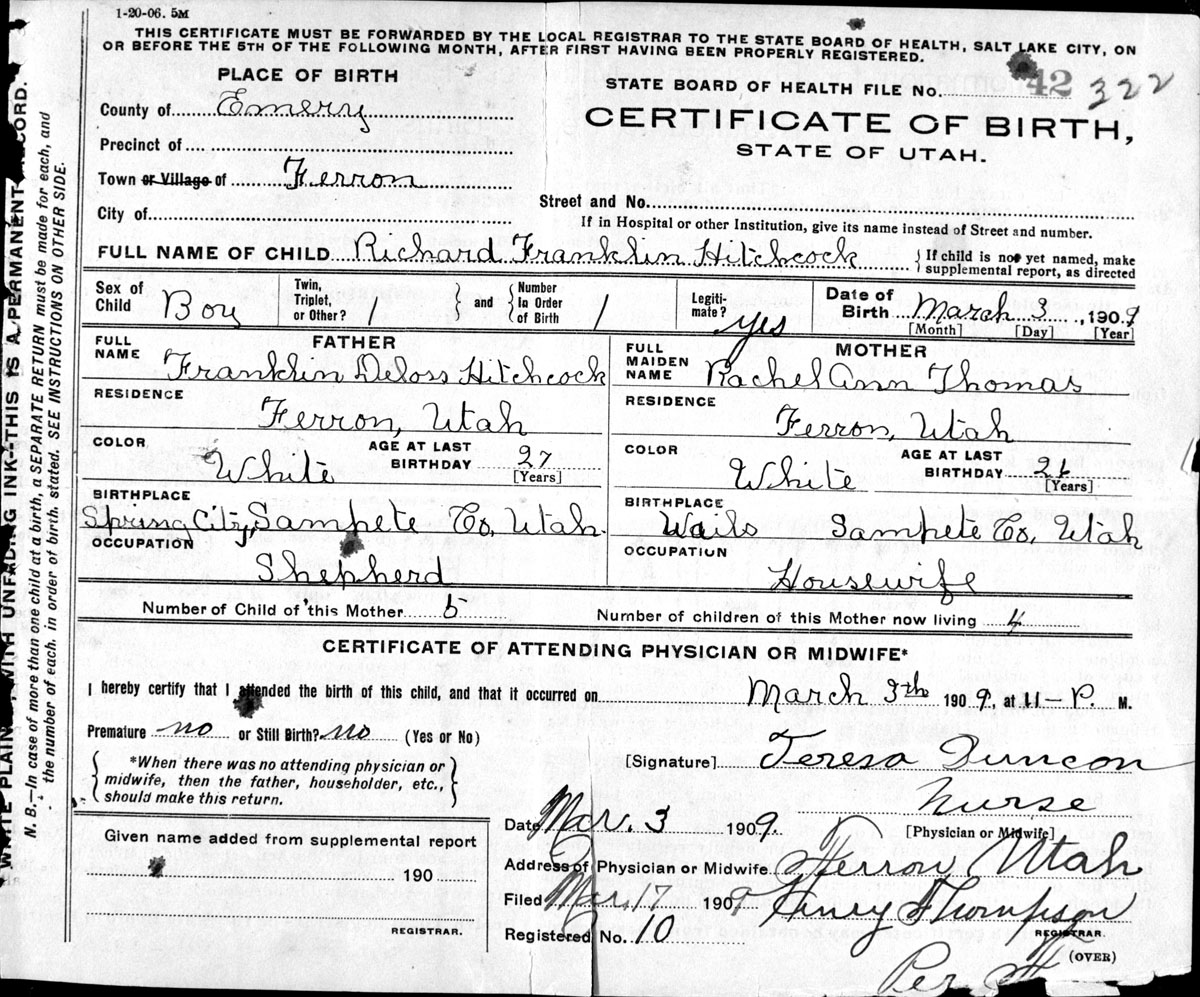 1-20-06. 5M
THIS CERTIFICATE MUST BE FORWARDED BY THE LOCAL REGISTRAR TO THE STATE BOARD OF HEALTH, SALT LAKE CITY, ON
OR BEFORE THE 5TH OF THE FOLLOWING MONTH, AFTER FIRST HAVING BEEN PROPERLY REGISTERED.
PLACE OF BIRTH
STATE BOARD OF HEALTH FILE No. 42 322
County of Emery
CERTIFICATE OF BIRTH,
STATE OF UTAH.
Precinct of
Town or Village of Ferron
Street and No.
City of
If in Hospital or other Institution, give its name instead of Street and number.
FULL NAME OF CHILD Richard Franklin Hitchcock { If child is not yet named, make
supplemental report, as directed
Sex of Child Boy Twin, Triplet, or Other? / } and { Number In Order of Birth / Legiti-mate? yes Date of Birth March 3, 1909
[Month] [Day] [Year]
FATHER
FULL NAME Franklin Deloss Hitchcock
MOTHER
FULL MAIDEN NAME Rachel Ann Thomas
RESIDENCE Ferron, Utah
RESIDENCE Ferron, Utah
COLOR White AGE AT LAST BIRTHDAY 27 [Years]
COLOR White AGE AT LAST BIRTHDAY 26 [Years]
BIRTHPLACE Spring City, Sampete Co, Utah.
BIRTHPLACE Wails Sampete Co, Utah
OCCUPATION Shepherd
OCCUPATION Housewife
Number of Child of this Mother 5 Number of children of this Mother now living 4
CERTIFICATE OF ATTENDING PHYSICIAN OR MIDWIFE*
I hereby certify that I attended the birth of this child, and that it occurred on March 3th 1909, at 11- P. M.
Premature no or Still Birth? no (Yes or No)
{ *When there was no attending physician or
midwife, then the father, householder, etc.,
should make this return. }
[Signature] Teresa Duncon
Nurse
[Physician or Midwife]
Date Mar. 3 1909.
Given name added from supplemental report
190
REGISTRAR.
Address of Physician or Midwife Ferron Utah
Filed Mar. 17 1909 Henry Thompson
REGISTRAR.
Registered No. 10
(OVER)
Per
WRITE PLAINLY WITH UNFADING INK--THIS IS A PERMANENT RECORD.
N. B.--In case of more than one child at a birth, a SEPARATE RETURN must be made for each, and
the number of each, in order of birth, stated. SEE INSTRUCTIONS ON OTHER SIDE.